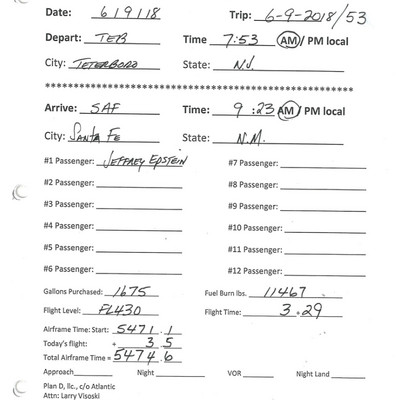 Date: 6/9/18 Trip: 6-9-2018/53
Depart: TEB Time 7:53 AM / PM local
City: TETERBORO State: N.J.
****************************************************
Arrive: SAF Time: 9:23 AM / PM local
City: SANTA FE State: N.M.
#1 Passenger: JEFFREY EPSTEIN #7 Passenger:
#2 Passenger: #8 Passenger:
#3 Passenger: #9 Passenger:
#4 Passenger: #10 Passenger:
#5 Passenger: #11 Passenger:
#6 Passenger: #12 Passenger:
Gallons Purchased: 1675 Fuel Burn lbs. 11467
Flight Level: FL430 Flight Time: 3.29
Airframe Time: Start: 5471.1
Today's flight: + 3.5
Total Airframe Time = 5474.6
Approach Night VOR Night Land
Plan D, llc., c/o Atlantic
Attn: Larry Visoski